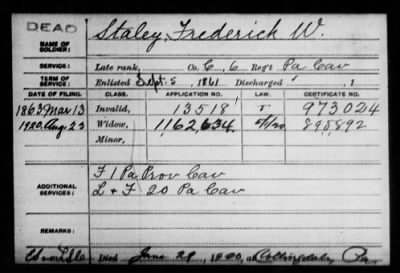 DEAD
Staley, Frederick W.
NAME OF SOLDIER:
SERVICE: Late rank, Co. C, 6 Reg't Pa Cav
TERM OF SERVICE: Enlisted Sept. 5, 1861 Discharged , 1
DATE OF FILING. CLASS. APPLICATION NO. LAW. CERTIFICATE NO.
1863 Mar 13 Invalid, 13518 973024
1920, Aug 23 Widow, 1162634. 898892
Minor,
ADDITIONAL SERVICES: F 1 Pa Prov Cav
L + F 20 Pa Cav
REMARKS:
Died June 29, 1920, at Collingdale, Pa.